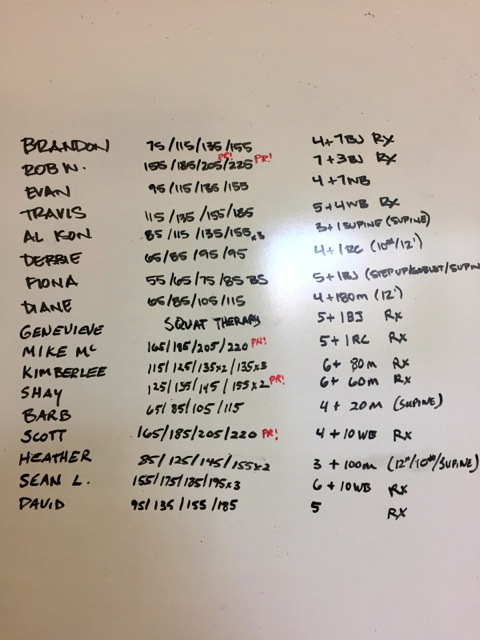 BRANDON 75/115/135/155 4+7BJ RX
ROB N. 155/185/205/225 PR! PR! 7+3BJ RX
EVAN 95/115/135/155 4+7WB
TRAVIS 115/135/155/185 5+4WB RX
ALISON 85/115/135/155x3 3+1SUPINE (SUPINE)
DEBBIE 65/85/95/95 4+1RC (10#/12')
FIONA 55/65/75/85 BS 5+1BJ (STEP UP/GOBLET/SUPIN
DIANE 65/85/105/115 4+180m (12')
GENEVIEVE SQUAT THERAPY 5+1BJ RX
MIKE Mc 165/195/205/220 PR! 5+1RC RX
KIMBERLEE 115/125/135x2/135x3 6+80m RX
SHAY 125/135/145/155x2 PR! 6+60m RX
BARB 65/85/105/115 4+20m (SUPINE)
SCOTT 165/185/205/220 PR! 4+10WB RX
HEATHER 85/125/145/155x2 3+100m (12"/10#/SUPINE)
SEAN L. 155/175/185/195x3 6+10WB RX
DAVID 95/135/155/185 5 RX